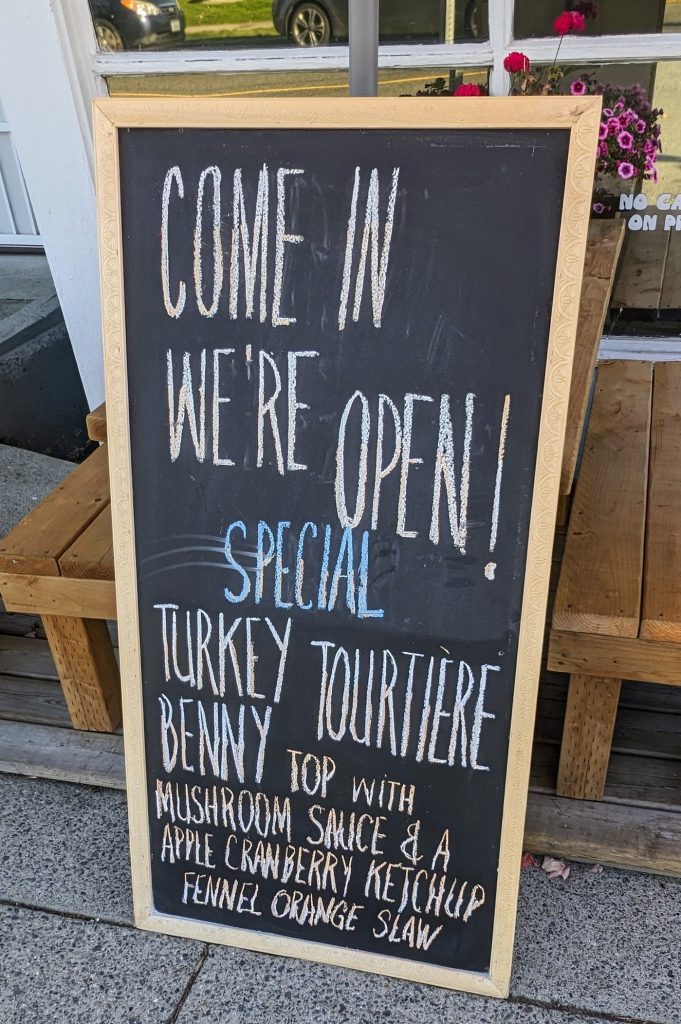 COME IN
WE'RE OPEN!
SPECIAL
TURKEY TOURTIÈRE
BENNY TOP WITH
MUSHROOM SAUCE & A
APPLE CRANBERRY KETCHUP
FENNEL ORANGE SLAW
NO
ON